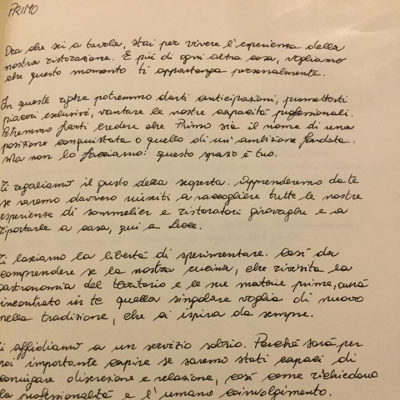 PRIMO
Ora che sei a tavola, stai per vivere l'esperienza della
nostra ristorazione. E più di ogni altra cosa, vogliamo
che questo momento ti appartenga personalmente.
In queste righe potremmo darti anticipazioni, prometterti
piaceri esclusivi, vantare le nostre capacità professionali.
Potremmo farti credere che Primo sia il nome di una
posizione conquistata o quello di un'ambizione fondata.
Ma non lo facciamo: questo spazio è tuo.
Ti regaliamo il gusto della scoperta. Apprenderemo da te
se saremo davvero riusciti a raccogliere tutte le nostre
esperienze di sommelier e ristoratori giravaghi e a
riportarle a casa, qui a Lecce.
Ti lasciamo la libertà di sperimentare. Così da
comprendere se la nostra cucina, che rivisita la
gastronomia del territorio e le sue materie prime, avrà
incontrato in te quella singolare voglia di nuovo
nella tradizione, che ci ispira da sempre.
Ti affidiamo a un servizio sobrio. Perché sarà per
noi importante capire se saremo stati capaci di
coniugare discrezione e relazione, così come richiedono
la professionalità e l'umano coinvolgimento.